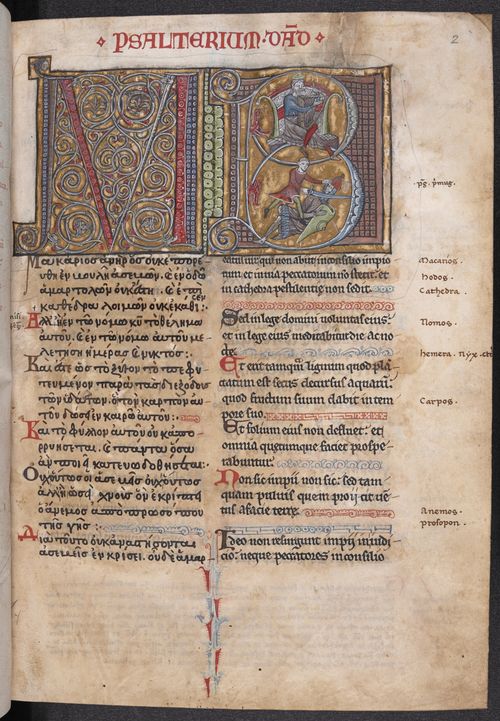 PSALTERIUM · DĀD
2
Μακαριοσ ανηρ οσ ουκ επορε
υθη εν βουλη ασεβων. Ϛ εν οδω
αμαρτολων ουκ εστη. Ϛ επι
καθεδρα λοιμων ουκ εκαθι
σεν
εν τω νομω κυ το θελημα
αυτου. Ϛ εν τω νομω αυτου με
λετησει ημερασ Ϛ νυκτοσ:
το πεφι
τευμενον παρα τασ διεξοδουσ
των υδατων. ο τον καρπον αυ
του δωσει εν καιρω αυτου:
Και το φυλλον αυτου ουκ απο
αν ποιη κατευωδωθησεται:
Ουχ ουτοσ οι ασεβεισ ουχ ουτοσ
ο ανεμοσ απο προσοπου
τησ γησ:
Δια τουτο ουκ αναστησονται
ασεβεισ εν κρισει. ουδε αμαρ
BEatus uir qui non abiit in consilio impio
rum et in uia peccatorum nō stetit: et
in cathedra pestilentię non sedit.
Sed in lege domini uoluntas eius:
et in lege eius meditabitur die ac no
cte.
Et erit tamquā lignum quod plā
tatum est secus decursus aquarū:
quod fructum suum dabit in tem
pore suo.
Et folium eius non defluet: et
omnia quęcumque faciet prospe
rabuntur.
Non sic impii non sic: sed tam
quam puluis quem proicit uē
tus a facie terrę.
Ideo non resurgunt impii in iudi
cio: neque peccatores in consilio
Macarios.
Hodos.
Cathedra.
Nomos.
hemera.
Carpos.
Anemos.
prosopon.